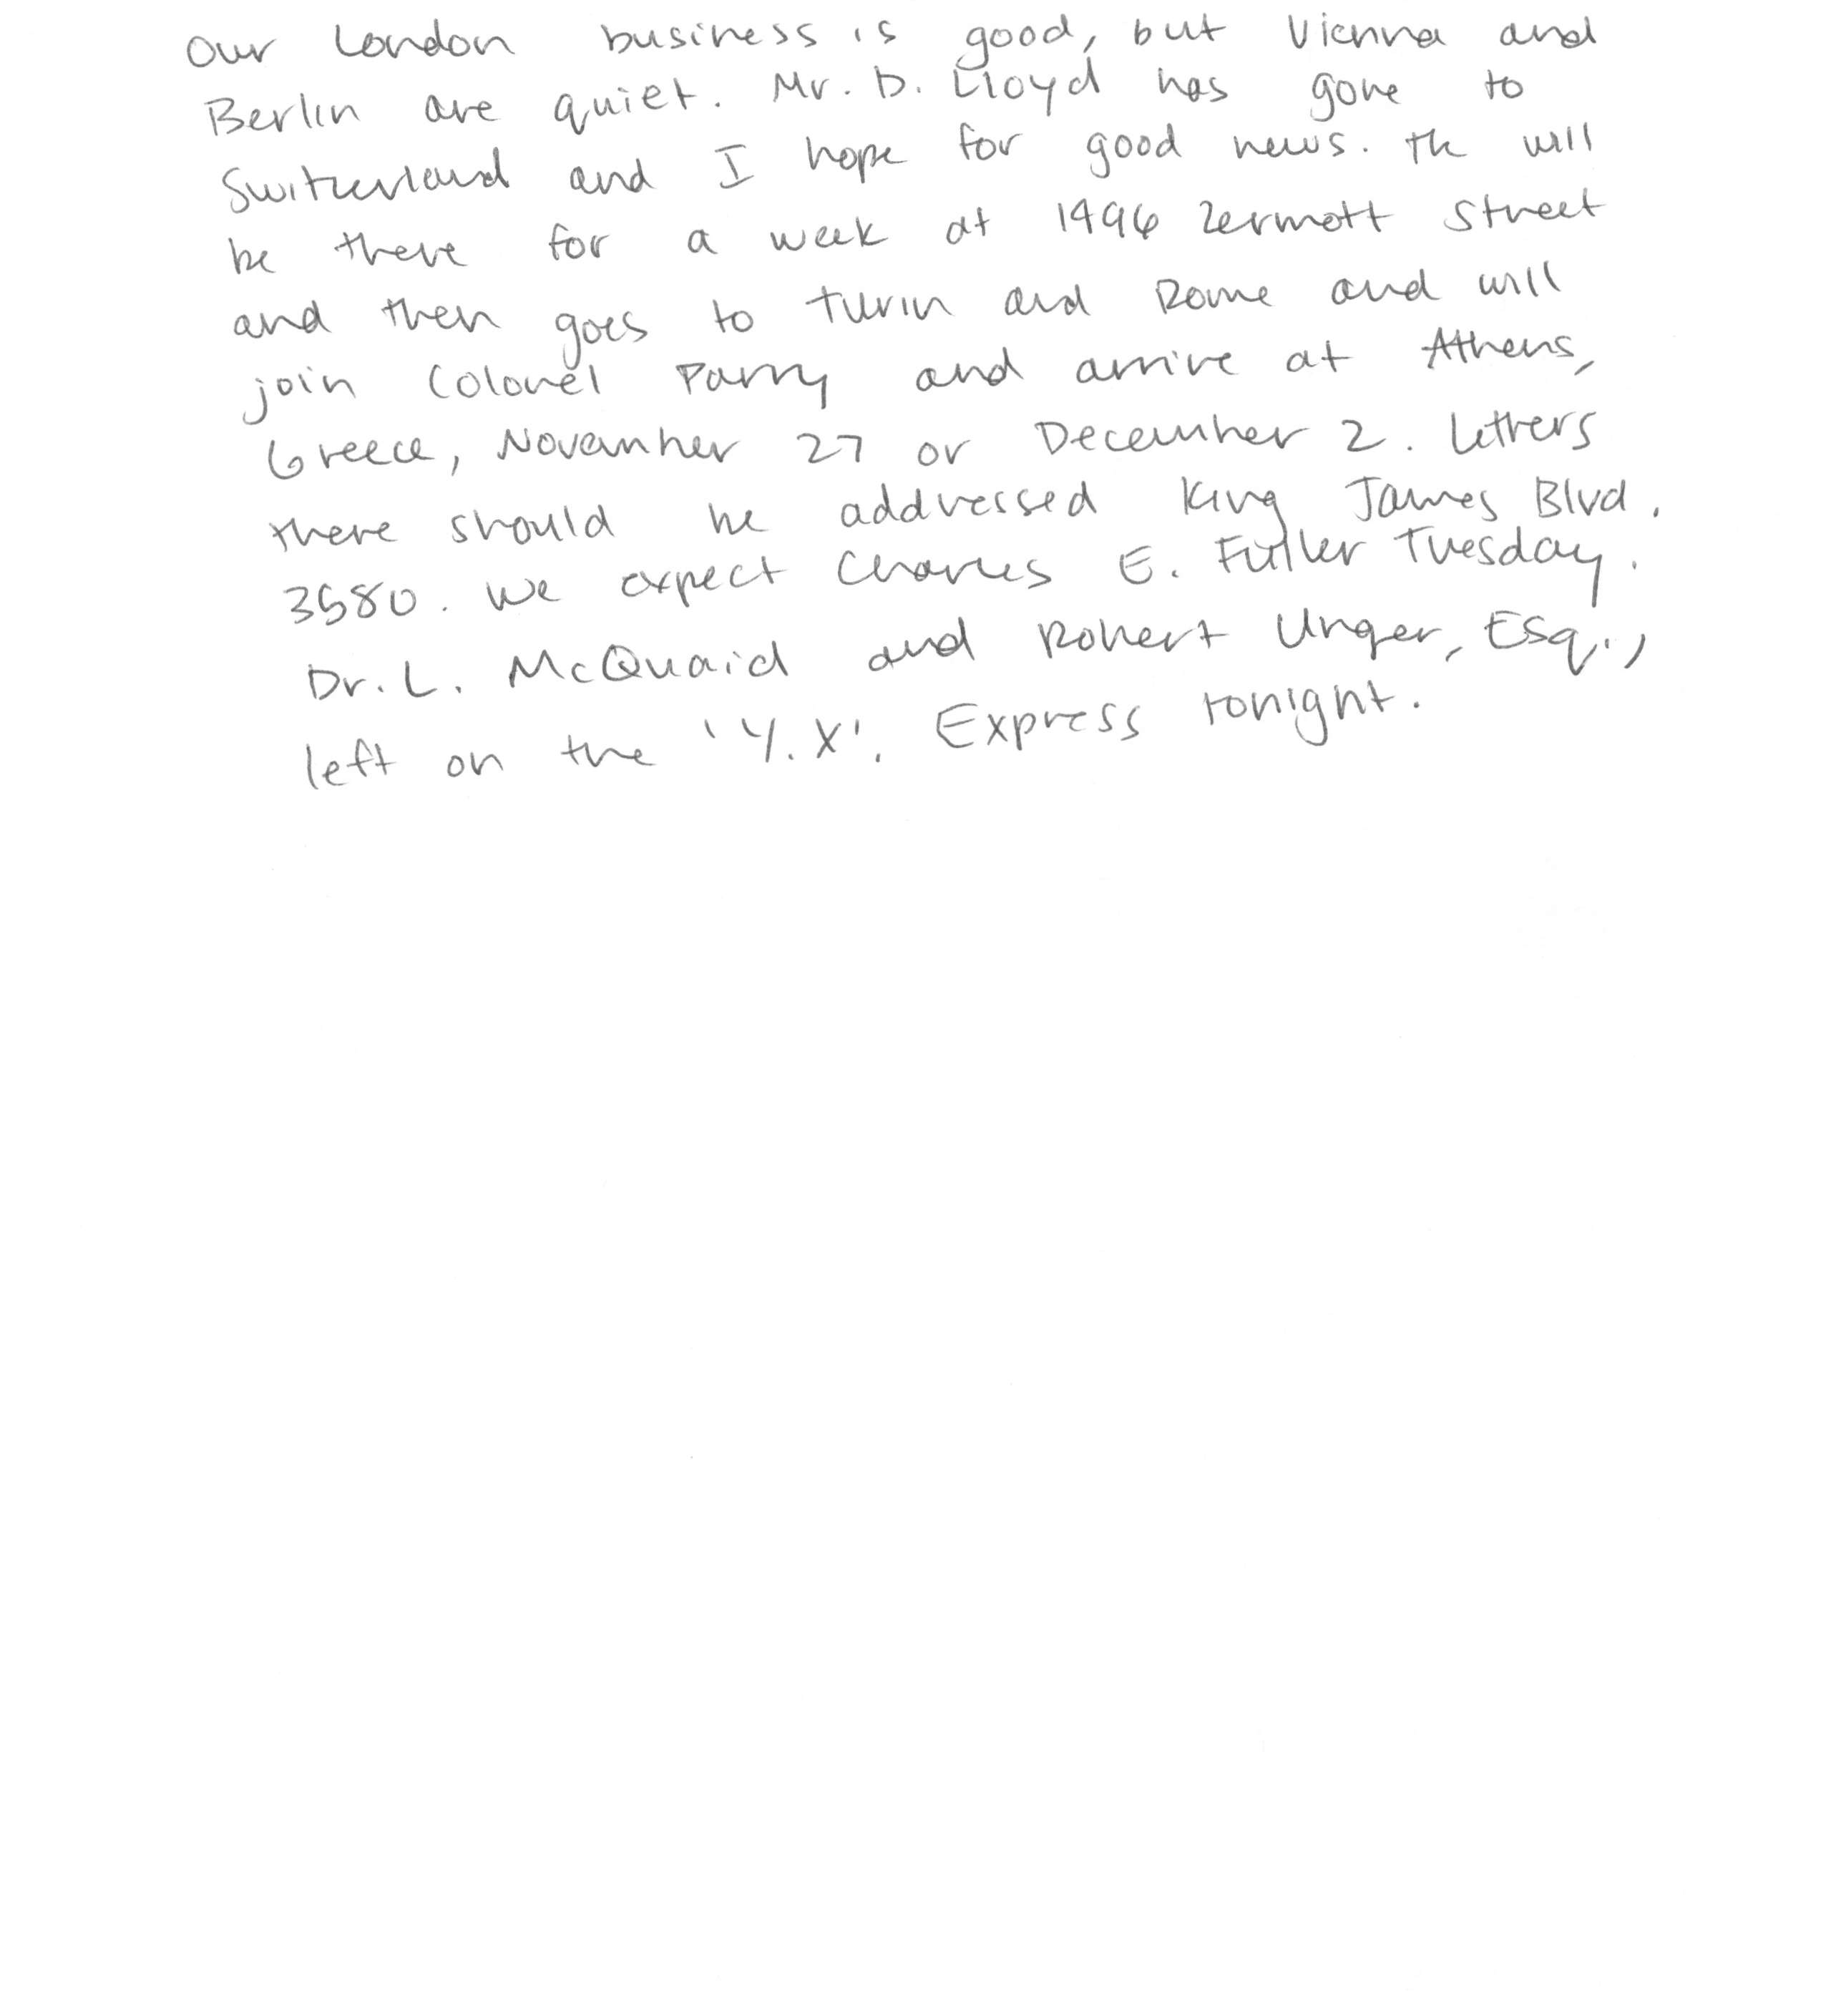 Our London business is good, but Vienna and
Berlin are quiet. Mr. D. Lloyd has gone to
Switzerland and I hope for good news. He will
be there for a week at 1496 Zermott Street
and then goes to Turin and Rome and will
join Colonel Parry and arrive at Athens,
Greece, November 27 or December 2. Letters
there should be addressed King James Blvd.
3580. We expect Charles E. Fuller Tuesday.
Dr. L. McQuaid and Robert Unger, Esq.,
left on the 'Y.X'. Express tonight.